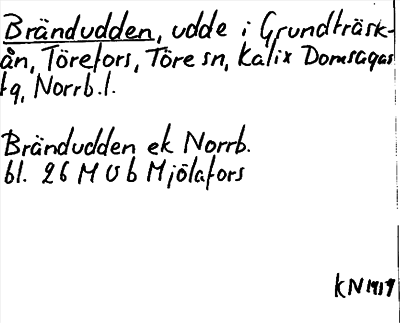 Brändudden, udde i Grundträsk-
ån, Törefors, Töre sn, Kalix Domsagas
tg, Norrb.l.
Brändudden ek Norrb.
bl. 26 M U b Mjölafors
KN 1919